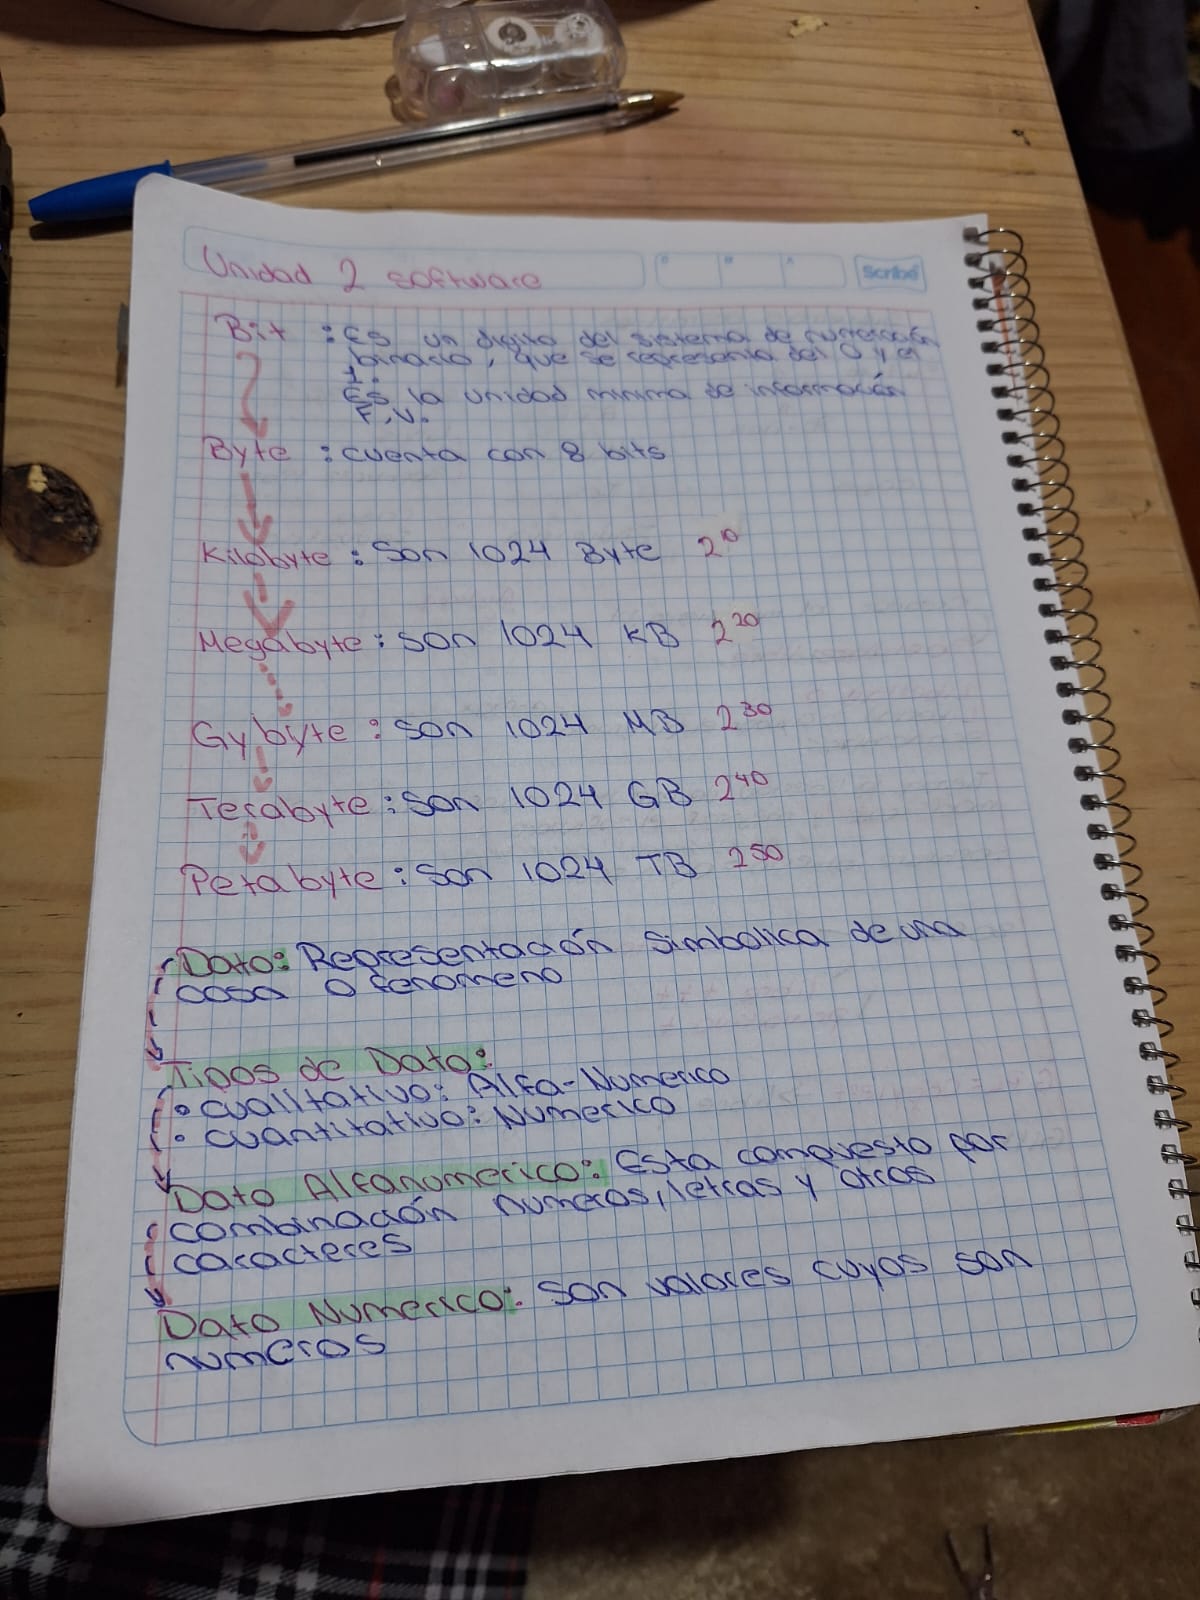 Unidad 2 software
Scribe
Bit : Es un digito del sistema de numeración
binario, que se representa del 0 y el
1.
Es la unidad minima de información
F, V.
Byte : cuenta con 8 bits
Kilobyte : Son 1024 Byte 2^10
Megabyte : son 1024 KB 2^20
Gybyte : son 1024 MB 2^30
Terabyte : son 1024 GB 2^40
Petabyte : son 1024 TB 2^50
Dato: Representación simbolica de una
cosa o fenomeno
Tipos de Dato:
• cualitativo: Alfa-Numerico
• cuantitativo: Numerico
Dato Alfanumerico: Esta compuesto por
combinación numeros, letras y otros
caracteres
Dato Numerico: son valores cuyos son
numeros